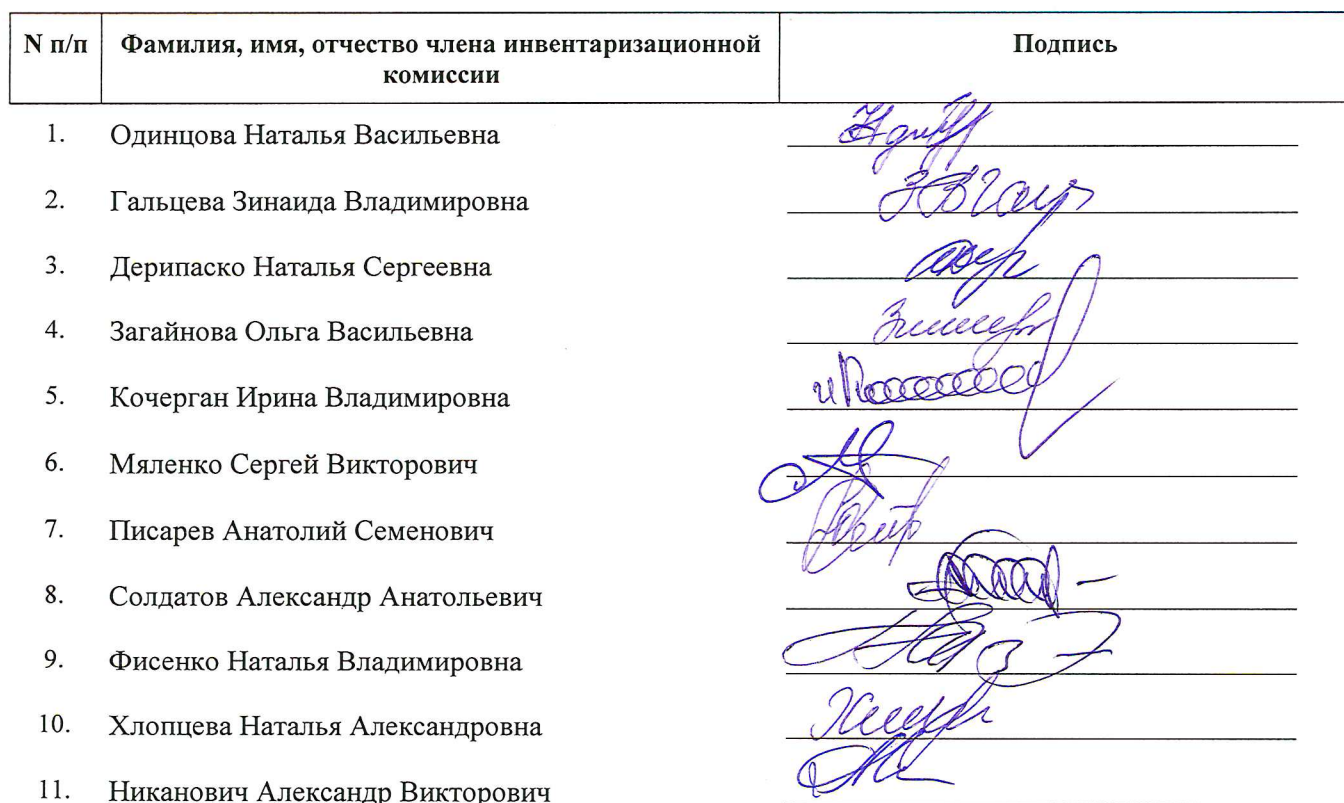 N п/п Фамилия, имя, отчество члена инвентаризационной комиссии Подпись
1. Одинцова Наталья Васильевна
2. Гальцева Зинаида Владимировна
3. Дерипаско Наталья Сергеевна
4. Загайнова Ольга Васильевна
5. Кочерган Ирина Владимировна
6. Мяленко Сергей Викторович
7. Писарев Анатолий Семенович
8. Солдатов Александр Анатольевич
9. Фисенко Наталья Владимировна
10. Хлопцева Наталья Александровна
11. Никанович Александр Викторович